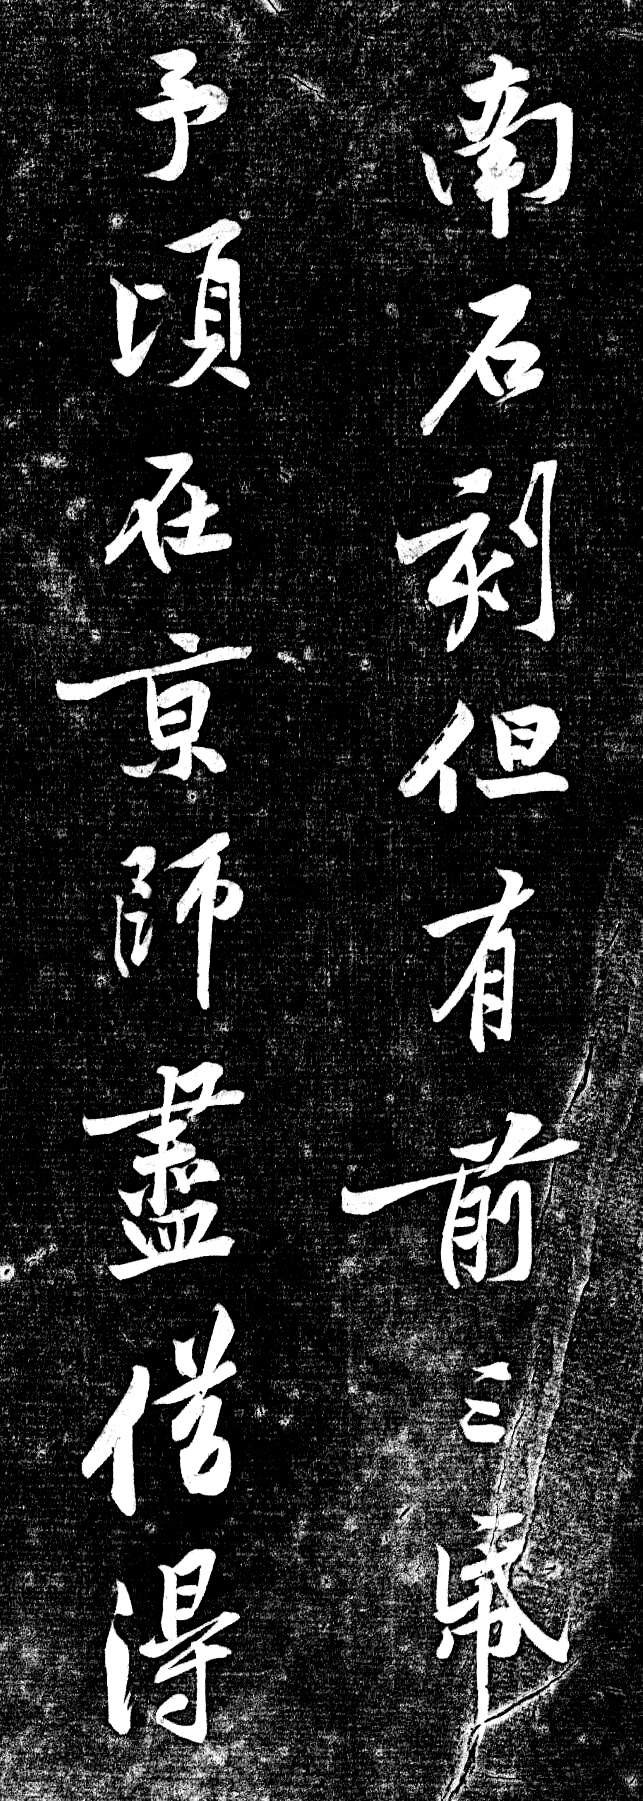 南石刻但有前三帋
予頃在京師盡借得